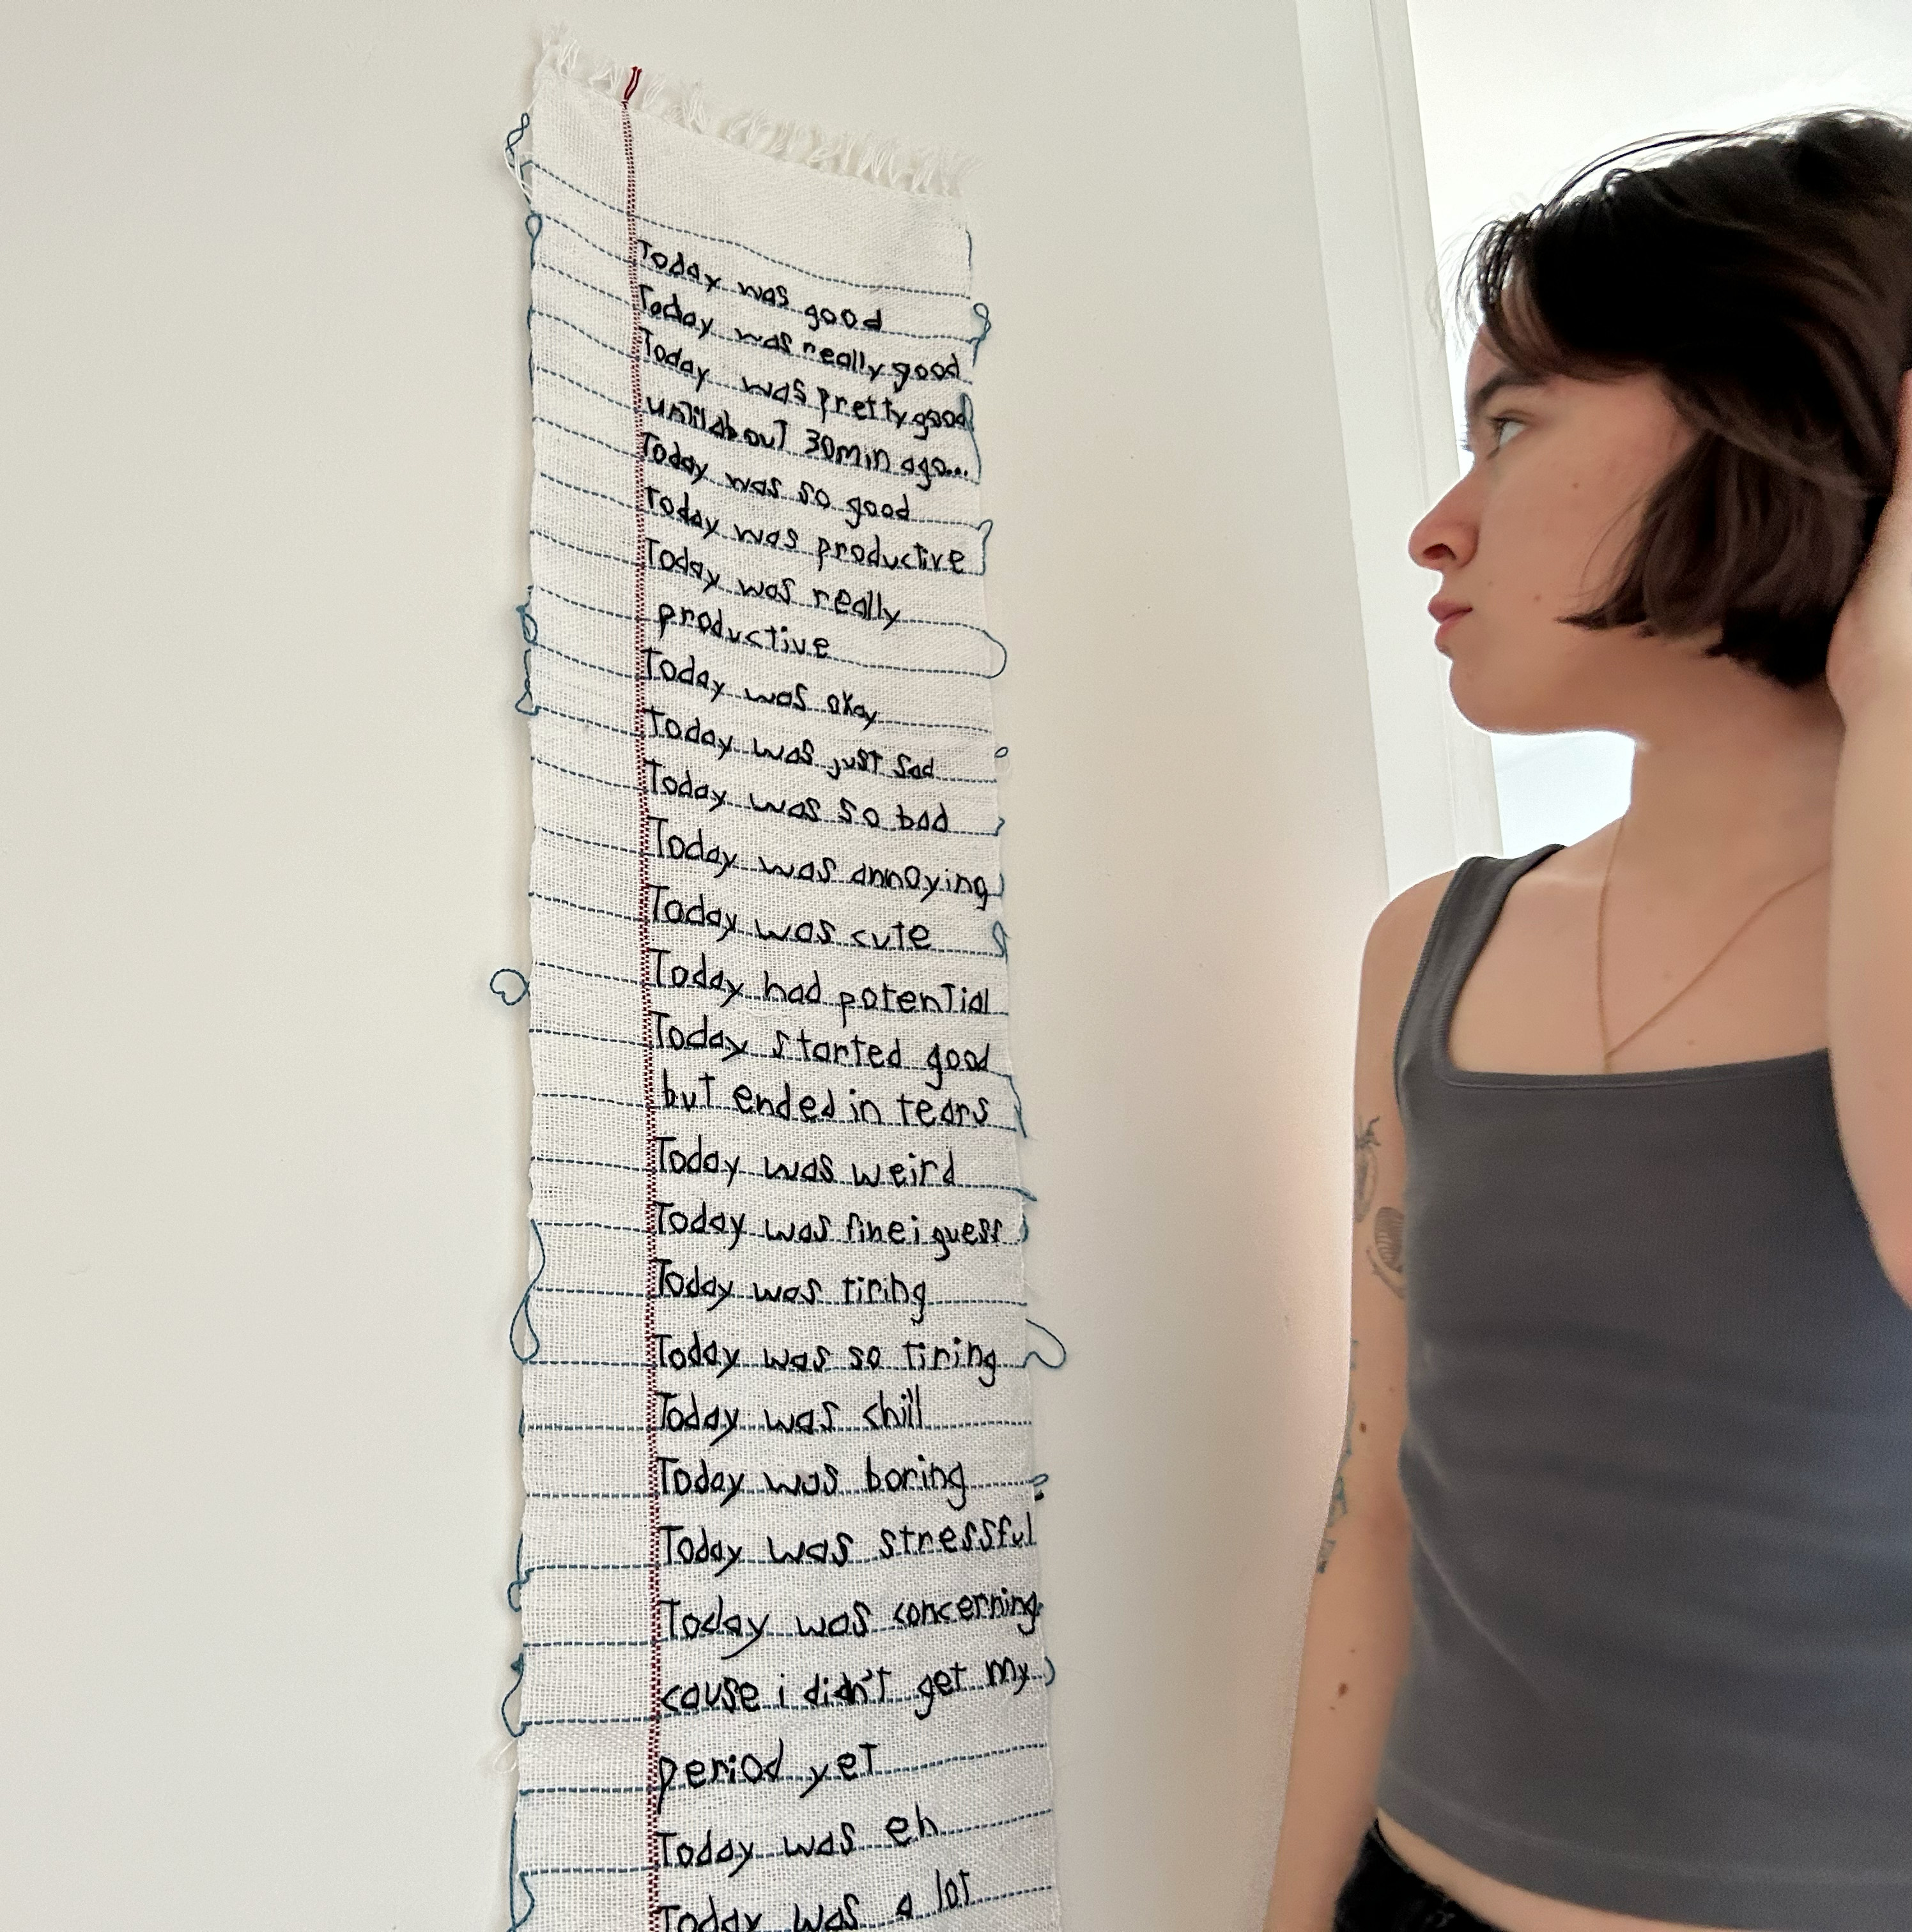 Today was good
Today was really good
Today was pretty good
until about 30min ago...
Today was so good
Today was productive
Today was really
productive
Today was okay
Today was just sad
Today was so bad
Today was annoying
Today was cute
Today had potential
Today started good
but ended in tears
Today was weird
Today was fine i guess
Today was tiring
Today was so tiring
Today was chill
Today was boring
Today was stressful
Today was concerning
cause i didn't get my
period yet
Today was eh
Today was a lot